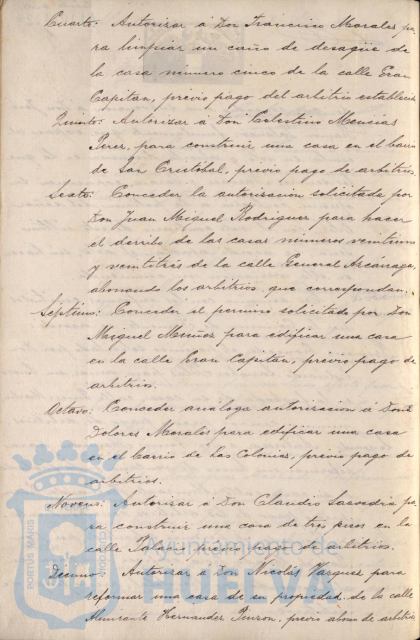 Cuarto: Autorizar á Don Francisco Morales pa
ra limpiar un caño de desagüe de
la casa número cinco de la calle Gran
Capitan, previo pago del arbitrio establecido
Quinto: Autorizar á Don Celestino Mencias
Perez, para construir una casa en el barrio
de San Cristobal, previo pago de arbitrios.
Sexto: Conceder la autorización solicitada por
Don Juan Miguel Rodriguez para hacer
el derribo de las casas números veintiuno
y veintitrés de la calle General Azcárraga
abonando los arbitrios que correspondan.
Séptimo: Conceder el permiso solicitado por Don
Miguel Muñoz para edificar una casa
en la calle Gran Capitan, previo pago de
arbitrios.
Octavo: Conceder análoga autorizacion á Doña
Dolores Morales para edificar una casa
en el barrio de Las Colonias, previo pago de
arbitrios.
Noveno: Autorizar á Don Claudio Saavedra pa
ra construir una casa de tres pisos en la
calle Palacio previo pago de arbitrios.
Décimo: Autorizar á Don Nicolás Vazquez para
reformar una casa de su propiedad de la calle
Almirante Hernandez Pinzon, previo abono de arbitrio
PORTUS MARIS
Ayuntamiento de
HUELVA